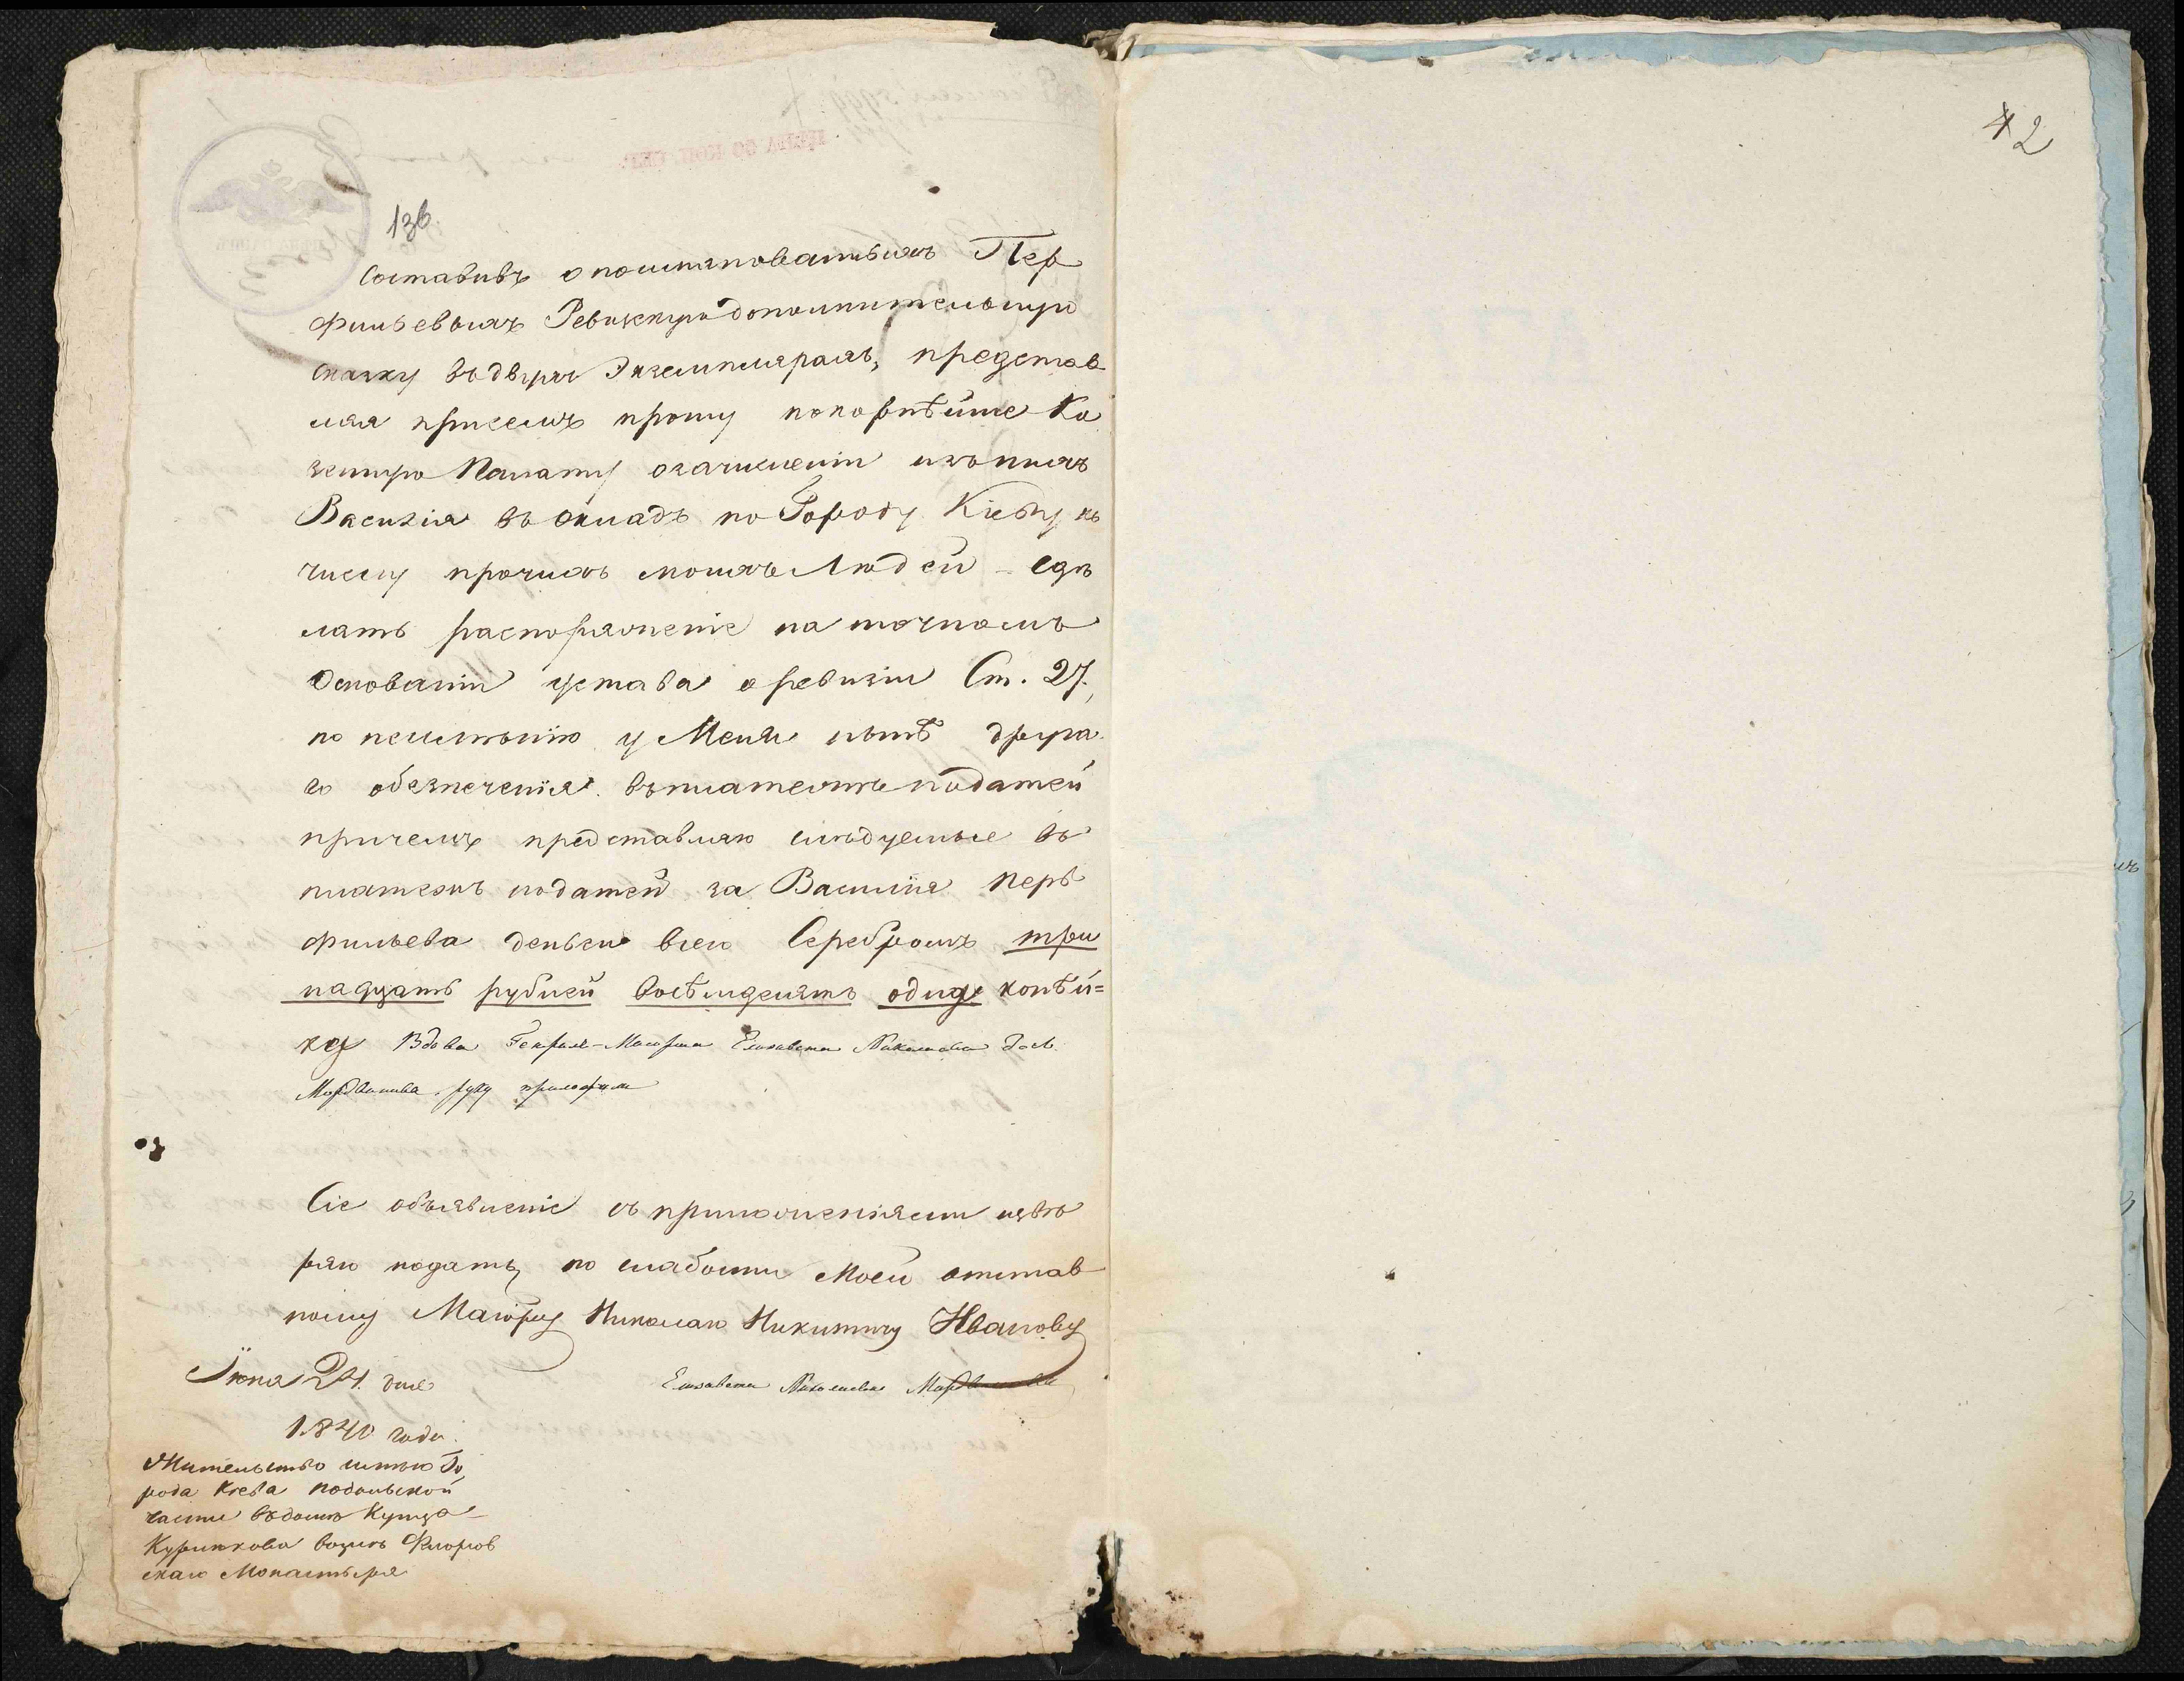 42
136
Составивъ о поименованныхъ Пер
фильевыхъ Ревизкую дополнительную
сказку въ двухъ Экземплярахъ, представ
ляя присемъ прошу покорнѣйше Ка
зенную Палату о зачисленіи изъ нихъ
Василія въ окладъ по Городу Кіеву къ
числу прочихъ моихъ Людей – сдѣ
лать распоряженіе на точномъ
Основаніи устава о ревизіи Ст. 27.,
по неимѣнію у Меня нѣтъ друга
го обезпеченія въ платежѣ податей
причемъ представляю слѣдуемые въ
платежъ податей за Василія Перь
фильева деньги всего Серебромъ три
надцать рублей восѣмдесятъ одну копѣй=
ку Вдова Генрале-Маиорша Елизавета Николаева дочь
Мордвинова руку приложила
Сіе объявленіе съ приложеніями ввѣ
ряю подать, по слабости Моей отстав
ному Маіору Николаю Никитичу Иванову
Іюня 24 дня
Елизавета Николаевна Мордвинова
1840 года.
Жительство имѣю Го
рода Кіева подольской
части въ домѣ Купца
возлѣ Флоров
скаго Монастыря